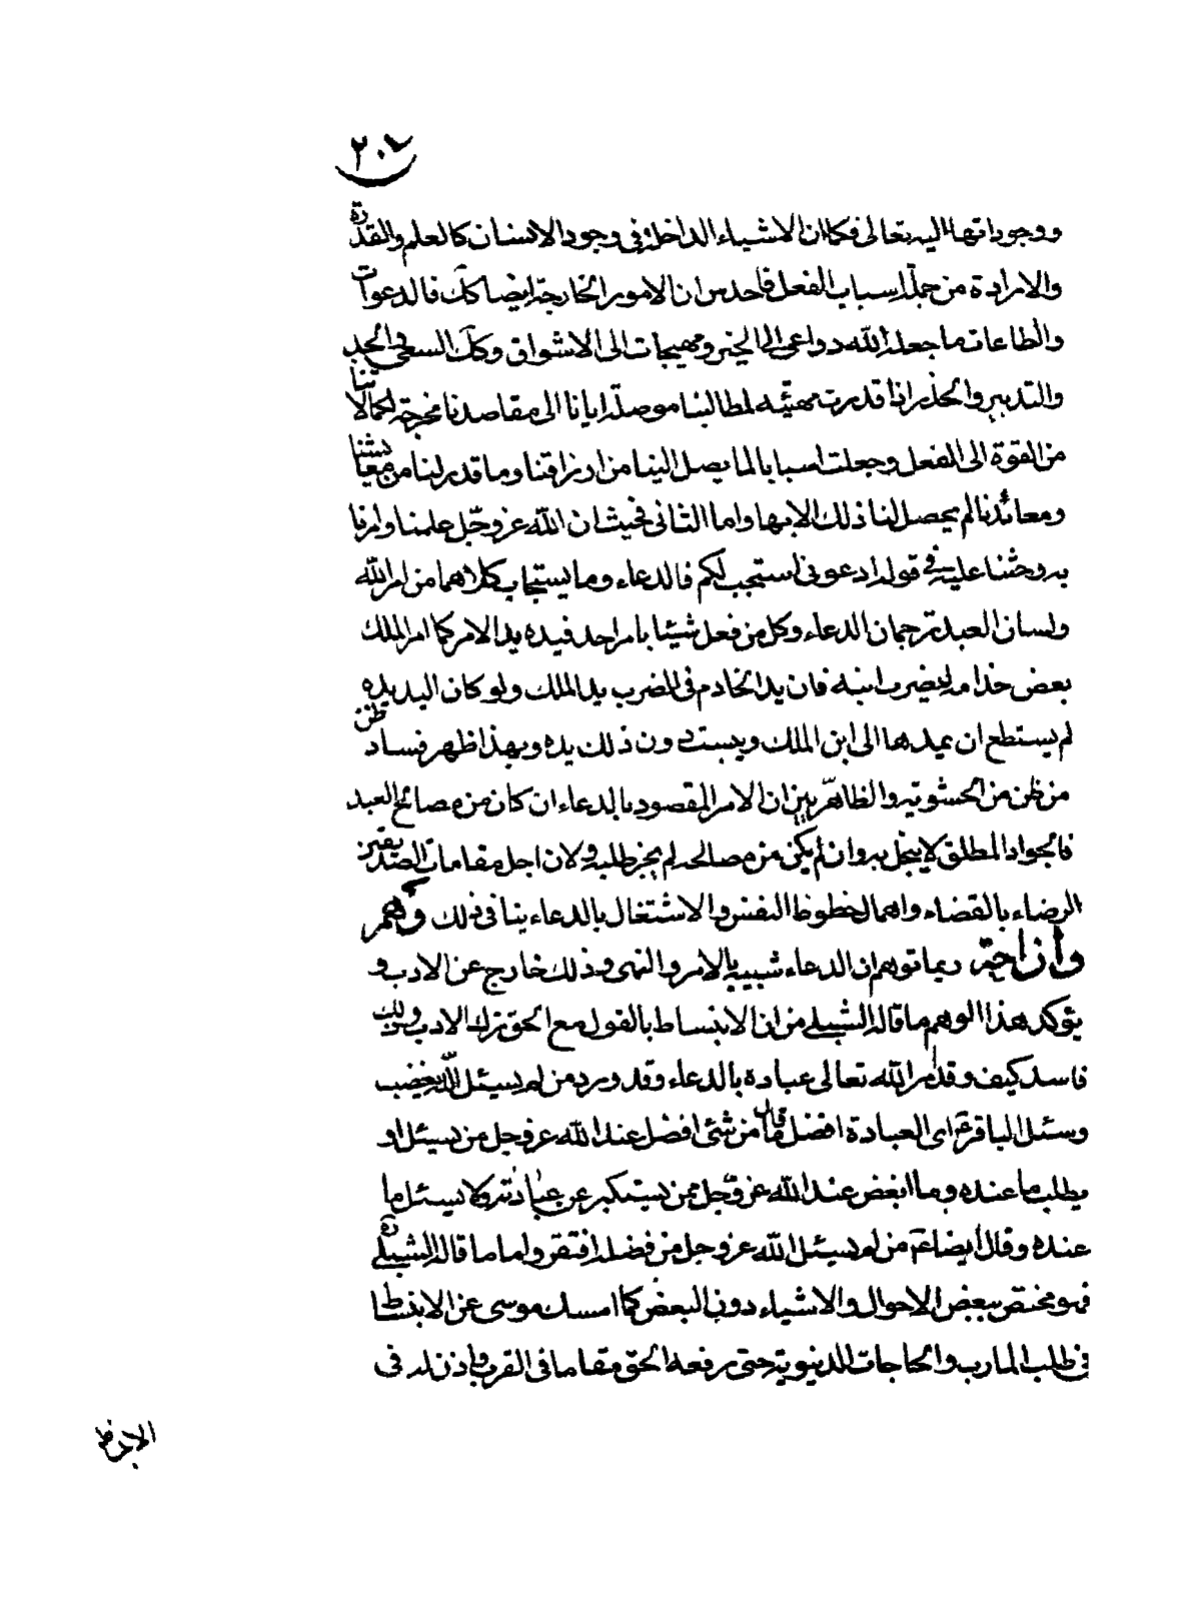 ٢٠٧
ووجوداتها اليه تعالى فكما ان الاشياء الداخلة في وجود الانسان كالعلم والقدرة
والارادة من جملة اسباب الفعل فاحدس ان الامور الخارجة ايضا كك فالدعوات
والطاعات ما جعله الله دواعى الى الخير ومهيجات الى الاشواق وكك السعى في الجد
والتدبير والحذر اذا قدرت مهيئه لمطالبنا موصلة ايانا الى مقاصدنا مخرجة لكمالاتنا
من القوة الى الفعل وجعلت اسبابا لما يصل الينا من ارزاقنا وما قدر لنا من معيايشنا
ومعائدنا لم يحصل لنا ذلك الا بها واما الثانى فحيث ان الله عز وجل علمنا وامرنا
به وحثنا عليه في قوله ادعونى استجب لكم فالدعاء وما يستجاب كلاهما من امر الله
ولسان العبد ترجمان الدعاء وكل من فعل شيئا بامر احد فيده يد الامر كما امر الملك
بعض خدامه ليضرب ابنه فان يد الخادم فى الضرب يد الملك ولو كان اليد يده
لم يستطع ان يمدها الى ابن الملك ويبست دون ذلك يده وبهذا ظهر فساد ظن
من ظن من الحشوية والظاهريين ان الامر المقصود بالدعاء ان كان من مصالح العبد
فالجواد المطلق لا يبخل به وان لم يكن من مصالحه لم يجز طلبه ولان اجل مقامات الصديقين
الرضاء بالقضاء واهمال حظوظ النفس والاشتغال بالدعاء ينافى ذلك وهم
وازاحة ربما توهم ان الدعاء شبيه بالامر والنهى وذلك خارج عن الادب و
يؤكد هذا الوهم ما قاله الشبلى من ان الانبساط بالقول مع الحق ترك الادب وذلك
فاسد كيف وقد امر الله تعالى عباده بالدعاء وقد ورد من لم يسئل الله يغضب
وسئل الباقر ع اى العبادة افضل قال ما من شئ افضل عند الله عز وجل من يسئل او
يطلب ما عنده وما ابغض عند الله عز وجل ممن يستكبر عن عبادته ولا يسئل ما
عنده وقال ايضا ع من لم يسئل الله عز وجل من فضله افتقر واما ما قاله الشبلى ره
فهو مختص ببعض الاحوال والاشياء دون البعض كما امسك موسى عن الانبساط
فى طلب المارب والحاجات الدنيوية حتى رفعه الحق مقاما فى القرب واذن له فى